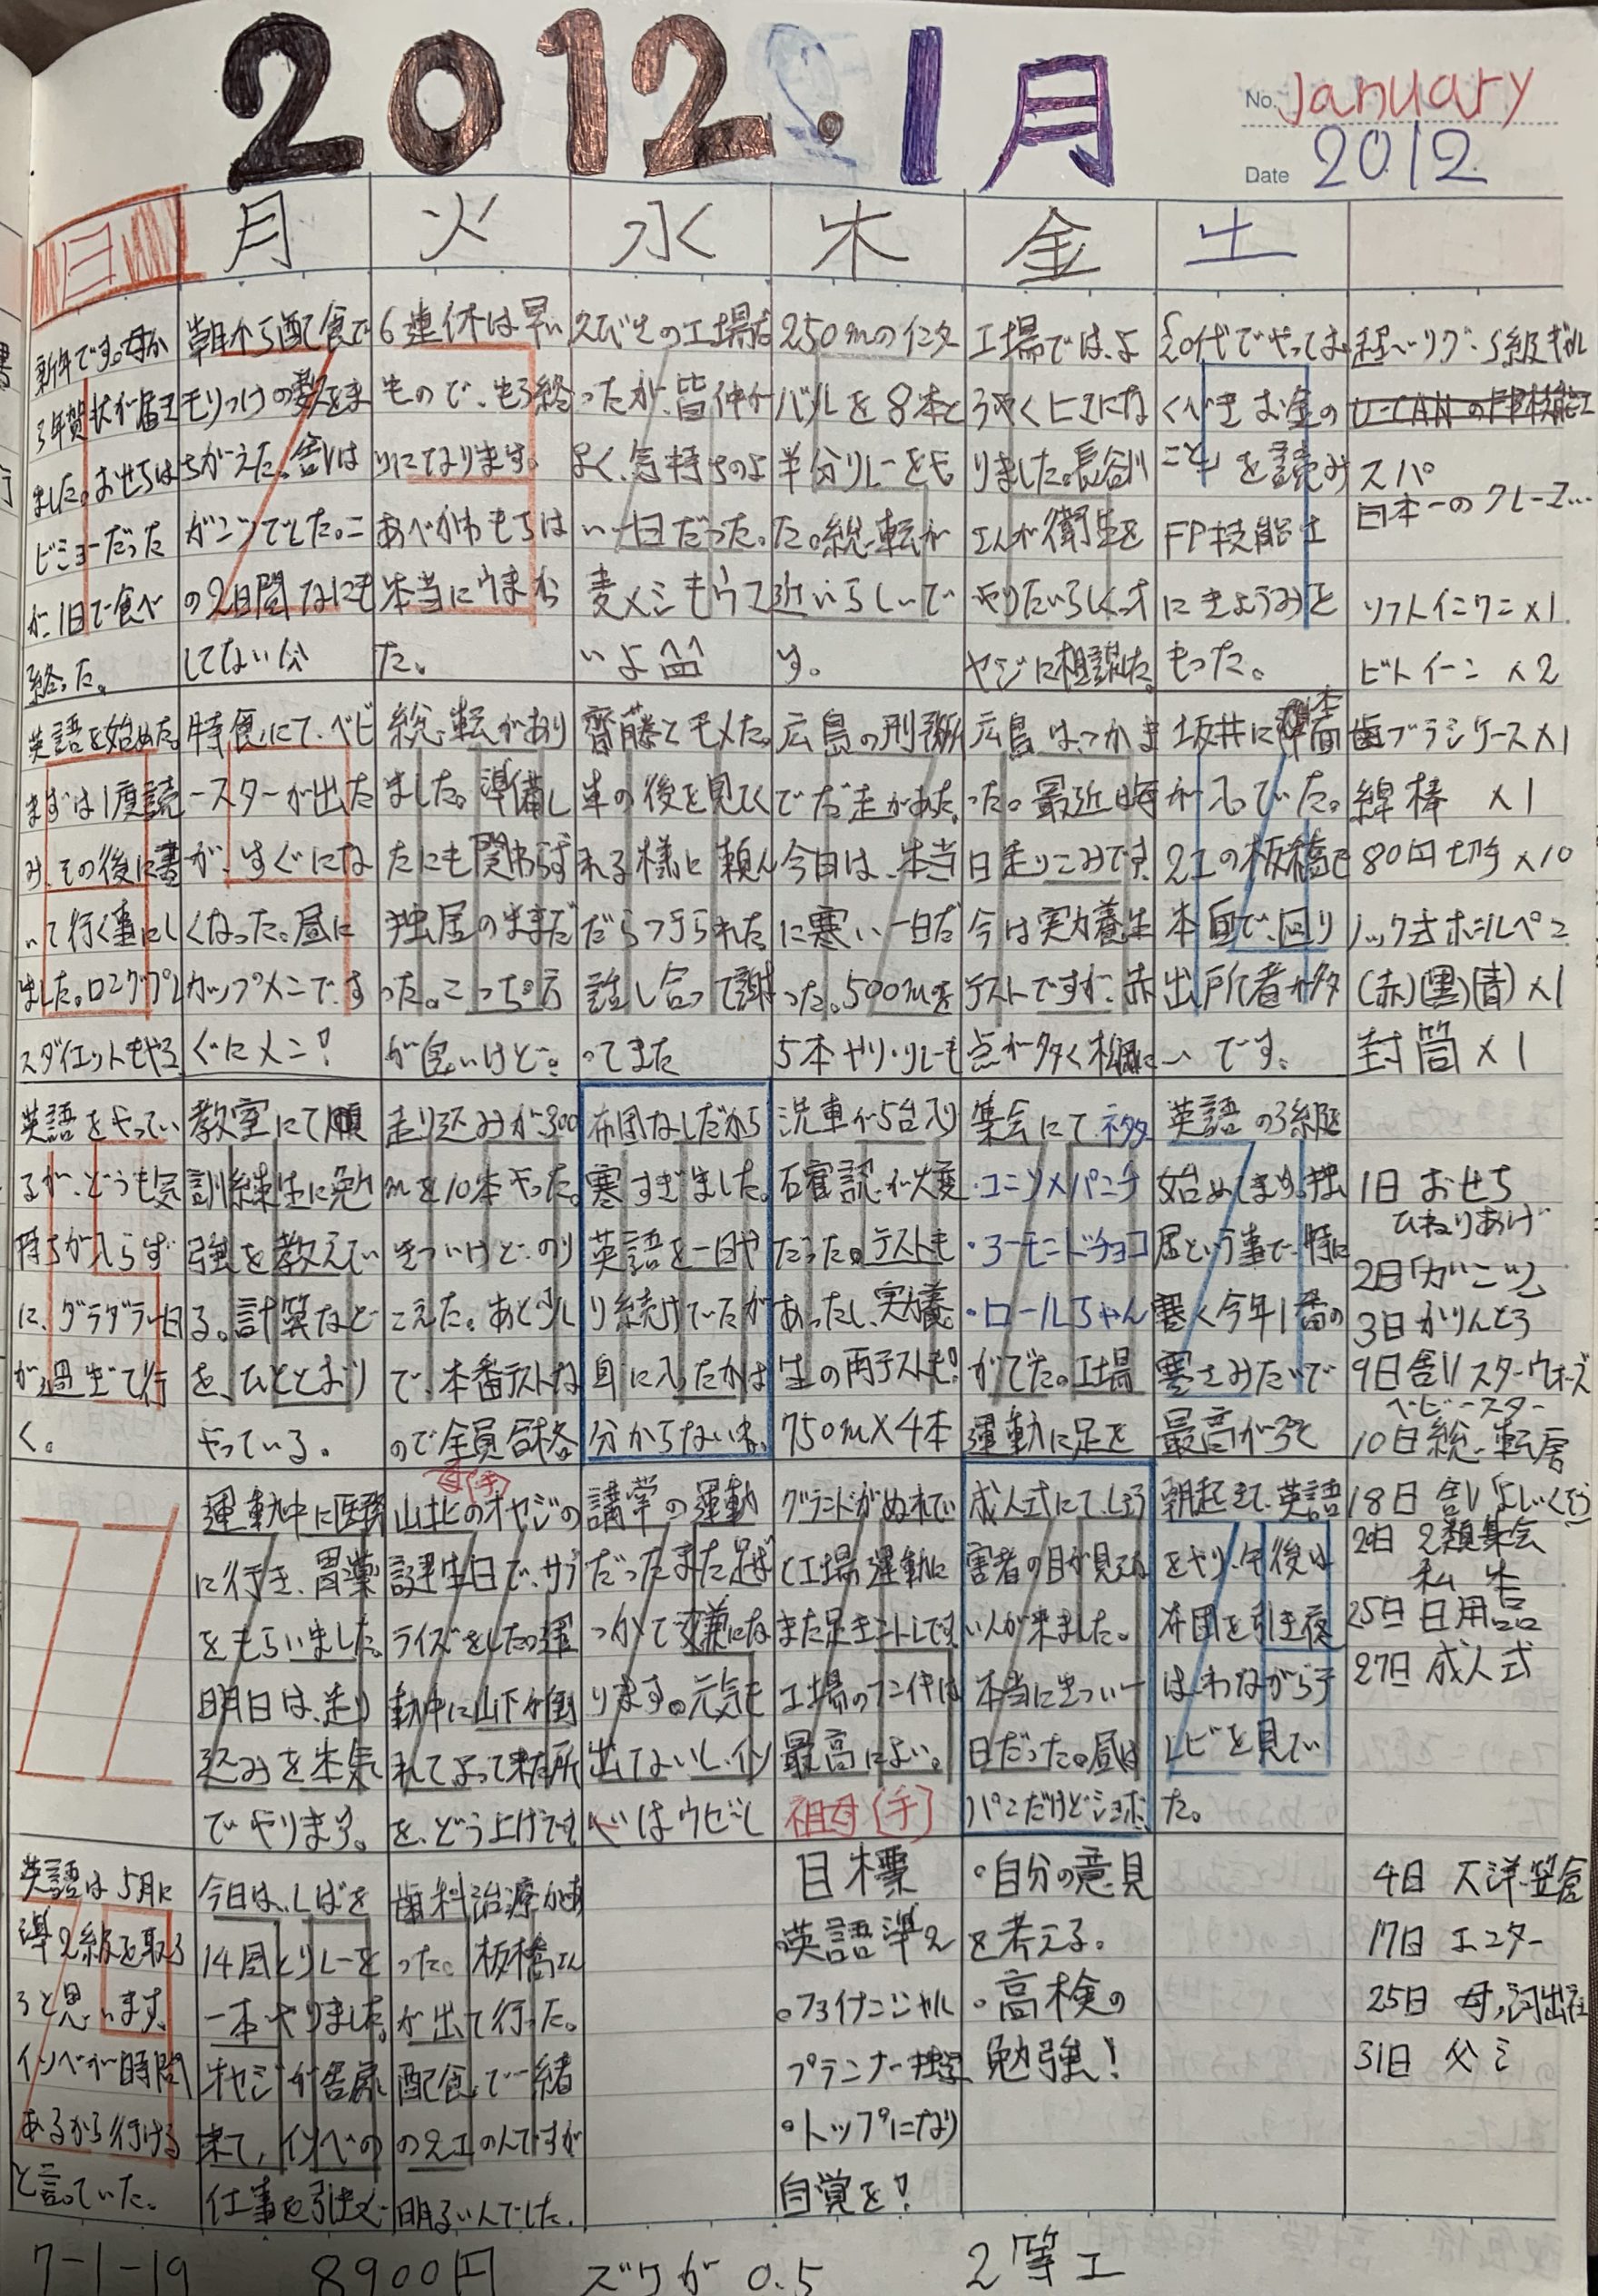 2012.1月
No. January
Date 2012.
日 月 火 水 木 金 土
新年です。母か
ら年賀状が届き
ました。おせちは
ビミョーだった
が、1日で食べ
終った。
朝から配食で
モリつけの数をま
ちがえた。舎りは
がニツでした。こ
の2日間なにも
してない分
6連休は早い
もので、もう終
りになります。
あべかわもちは
本当にうまかっ
た。
えびせの工場だ
ったが、皆仲が
よく、気持ちのよ
い一日だった。
麦メシもウマ
いよ
250mのインタ
バルを8本と
半分リレーをし
た。総・転が
近いらしいで
す。
工場では、よ
うやくヒマにな
りました。長谷川
さんが衛生を
やりたいらしく、オ
ヤジに相談した。
20代でやってお
くべきお金の
こと」を読み
FP技能士
にきょうみを
もった。
超〜リグ・S級ギルド
U-CANのFP技能士
スパ
日本一のクレーマー…
ソフトインワン×1.
ビトイーン ×2
英語を始めた。
まずは1度読
み、その後に書
いて行く事にし
ました。ロングブレ
スダイエットもやる
特食にて、ベビ
ースターが出た
が、すぐにな
くなった。昼に
カップメンです
ぐにメン!
総・転があり
ました。準備し
たにも関わらず
独居のままだ
った。こっちの方
が良いけど。
齋藤とモメた。
単の後を見てく
れる様に頼ん
だらつ手られた
話し合って謝
ってきた
広島の刑務所
でだ走があった。
今日は、本当
に寒い一日だ
った。500mを
5本やり・リレーも
広島は、つかま
った。最近は毎
日走りこみです。
今は実力養生
テストですが、赤
点が多く
坂井に準備
が入っていた。
2工の板橋も
本面で、回り
出所者が多
いです。
歯ブラシケース×1
綿棒 ×1
80円切手×10
ノック式ボールペン
(赤)(黒)(青)×1
封筒×1
英語をやってい
るが、どうも気
持ちが入らず
に、ダラダラ一日
が過ぎて行
く。
教室にて順
訓練生に勉
強を教えてい
る。計算など
を、ひととおり
やっている。
走り込みが、300
mを10本やった。
きついけど、のり
こえた。あと少し
で、本番テストな
ので全員合格
布団なしだから
寒すぎました。
英語を一日や
り続けていたが
身に入ったかは
分からないネ。
洗車が5台入り
石寉認が大変
だった。テストも
あったし、実力養
生の両テストも!
750m×4本
集会にて、ネクタ
・コニツメパンチ
・アーモンドチョコ
・ロールちゃん
がでた。工場
運動に足を
英語の3級を
始めてます。独
居という事で、特に
寒く今年1番の
寒さみたいで
最高が3℃
1日 おせち
ひねりあげ
2日「ガーニツ」
3日 かりんとう
9日 舎り スターウォーズ
ベビースター
10日 総・転房
18日 舎り
20日 2類集会
私 告
25日 日用品
27日 成人式
運動中に医務
に行き、胃薬
をもらいました。
明日は、走り
込みを本気
でやります。
母(手)
山北のオヤジの
誕生日で、サプ
ライズをした。運
動中に山下が倒
れてよって来た所
を、どう上げです
講堂の運動
だった。また足が
つかて嫌にな
ります。元気を
出てないし、イン
ベはウゼーし
グランドがぬれてい
て工場運動に
また足をミントしです
工場のフン仲は
最高によい。
祖母(手)
成人式にて、しょう
害者の目が見えな
い人が来ました。
本当にきつい一
日だった。昼は
パンだけどショボ
朝起きて、英語
をやり、午後は
布団を引き夜
は、わながらテ
レビを見てい
た。
英語は5月に
準2級を取ろ
うと思います。
インベが時間
あるから行ける
と言っていた。
今日は、しばを
14周とリレーを
一本走りました。
オヤジが舎房に
来て、インベの
仕事を引きメ
歯科治療があ
った。板橋さん
が出て行った。
配食で一緒
の2工の人ですが
明るい人でした。
目標
英語準2
。ファイナンシャル
プランナー
。トップになり
自覚を!
。自分の意見
を考える。
。高検の
勉強!
4日 大洋・笠倉
17日 エンター
25日 母,河出社
31日 父ミ
7-1-19 8900円 ズワが 0.5 2等工